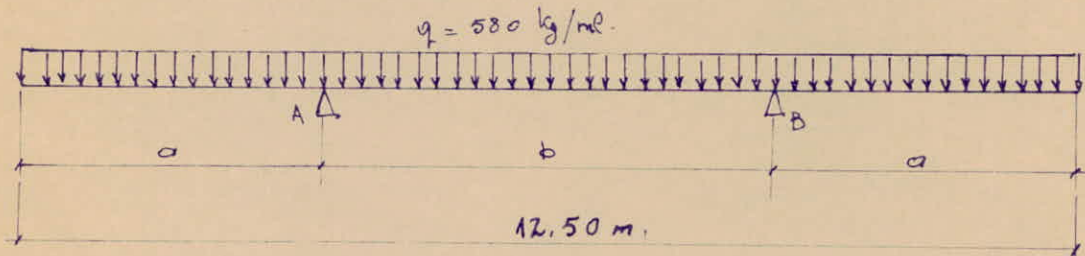 q = 580 kg/ml.
A
B
a
b
a
12.50 m.